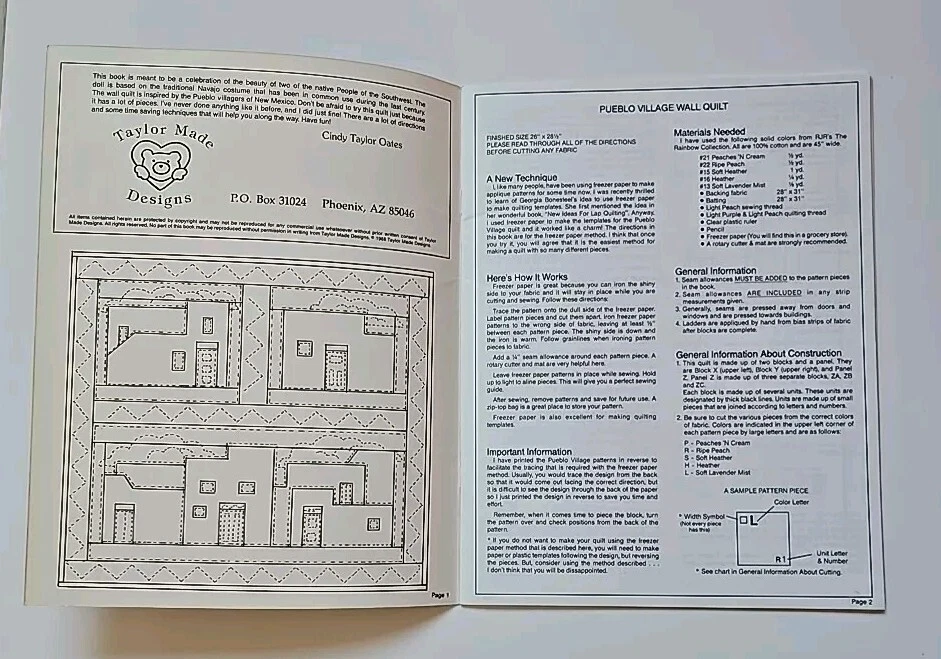 This book is meant to be a celebration of the beauty of two of the native People of the Southwest. The
doll is based on the traditional Navajo costume that has been in common use during the last century.
The wall quilt is inspired by the Pueblo villagers of New Mexico. Don't be afraid to try this quilt just because
it has a lot of pieces. I've never done anything like it before, and I did just fine! There are a lot of directions
and some time saving techniques that will help you along the way. Have fun!
Cindy Taylor Oates
Taylor Made
Designs
P.O. Box 31024 Phoenix, AZ 85046
All items contained herein are protected by copyright and may not be reproduced for any commercial use whatsoever without prior written consent of Taylor
Made Designs. All rights reserved. No part of this book may be reproduced without permission in writing from Taylor Made Designs. © 1988 Taylor Made Designs.
Page 1
PUEBLO VILLAGE WALL QUILT
FINISHED SIZE 26" x 28½"
PLEASE READ THROUGH ALL OF THE DIRECTIONS
BEFORE CUTTING ANY FABRIC
A New Technique
I, like many people, have been using freezer paper to make
applique patterns for some time now. I was recently thrilled
to learn of Georgia Bonesteel's idea to use freezer paper
to make quilting templates. She first mentioned the idea in
her wonderful book, "New Ideas For Lap Quilting". Anyway,
I used freezer paper to make the templates for the Pueblo
Village quilt and it worked like a charm! The directions in
this book are for the freezer paper method. I think that once
you try it, you will agree that it is the easiest method for
making a quilt with so many different pieces.
Here's How It Works
Freezer paper is great because you can iron the shiny
side to your fabric and it will stay in place while you are
cutting and sewing. Follow these directions:
Trace the pattern onto the dull side of the freezer paper.
Label pattern pieces and cut them apart. Iron freezer paper
patterns to the wrong side of fabric, leaving at least ½"
between each pattern piece. The shiny side is down and
the iron is warm. Follow grainlines when ironing pattern
pieces to fabric.
Add a ¼" seam allowance around each pattern piece. A
rotary cutter and mat are very helpful here.
Leave freezer paper patterns in place while sewing. Hold
up to light to aline pieces. This will give you a perfect sewing
guide.
After sewing, remove patterns and save for future use. A
zip-top bag is a great place to store your pattern.
Freezer paper is also excellent for making quilting
templates.
Important Information
I have printed the Pueblo Village patterns in reverse to
facilitate the tracing that is required with the freezer paper
method. Usually, you would trace the design from the back
so that it would come out facing the correct direction, but
it is difficult to see the design through the back of the paper
so I just printed the design in reverse to save you time and
effort.
Remember, when it comes time to piece the block, turn
the pattern over and check positions from the back of the
pattern.
* If you do not want to make your quilt using the freezer
paper method that is described here, you will need to make
paper or plastic templates following the design, but reversing
the pieces. But, consider using the method described . . .
I don't think that you will be disappointed.
Materials Needed
I have used the following solid colors from RJR's The
Rainbow Collection. All are 100% cotton and are 45" wide.
#21 Peaches 'N Cream
#22 Ripe Peach
#15 Soft Heather 1 yd.
#16 Heather
#13 Soft Lavender Mist
● Backing fabric 28" x 31"
● Batting 28" x 31"
● Light Peach sewing thread
● Light Purple & Light Peach quilting thread
● Clear plastic ruler
● Pencil
● Freezer paper (You will find this in a grocery store).
● A rotary cutter & mat are strongly recommended.
General Information
1. Seam allowances MUST BE ADDED to the pattern pieces
in the book.
2. Seam allowances ARE INCLUDED in any strip
measurements given.
3. Generally, seams are pressed away from doors and
windows and are pressed towards buildings.
4. Ladders are appliqued by hand from bias strips of fabric
after blocks are complete.
General Information About Construction
1. This quilt is made up of two blocks and a panel. They
are Block X (upper left), Block Y (upper right), and Panel
Z. Panel Z is made up of three separate blocks, ZA, ZB
and ZC.
Each block is made up of several units. These units are
designated by thick black lines. Units are made up of small
pieces that are joined according to letters and numbers.
2. Be sure to cut the various pieces from the correct colors
of fabric. Colors are indicated in the upper left corner of
each pattern piece by large letters and are as follows:
P - Peaches 'N Cream
R - Ripe Peach
S - Soft Heather
H - Heather
L - Soft Lavender Mist
A SAMPLE PATTERN PIECE
Color Letter
* Width Symbol
(Not every piece
has this)
L
R 1
Unit Letter
& Number
* See chart in General Information About Cutting.
Page 2